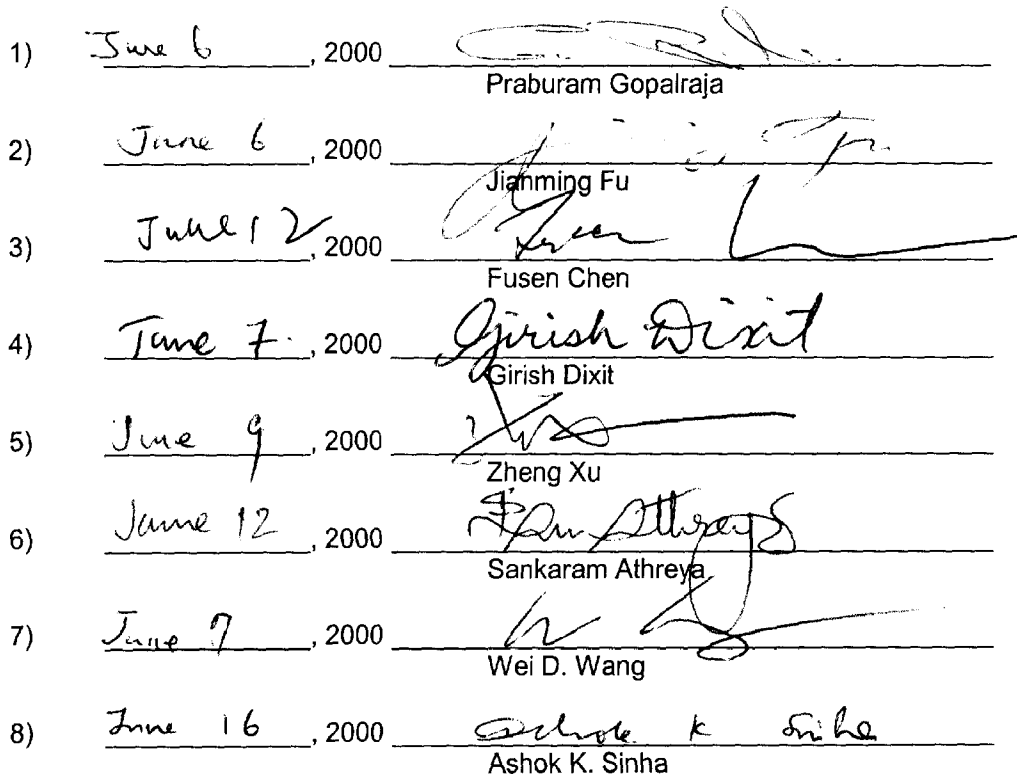 1) June 6, 2000
Praburam Gopalraja
2) June 6, 2000
Jianming Fu
3) June 12, 2000
Fusen Chen
4) June 7, 2000 Girish Dixit
Girish Dixit
5) June 9, 2000
Zheng Xu
6) June 12, 2000 Ram Athreya
Sankaram Athreya
7) June 7, 2000
Wei D. Wang
8) June 16, 2000 Ashok K Sinha
Ashok K. Sinha